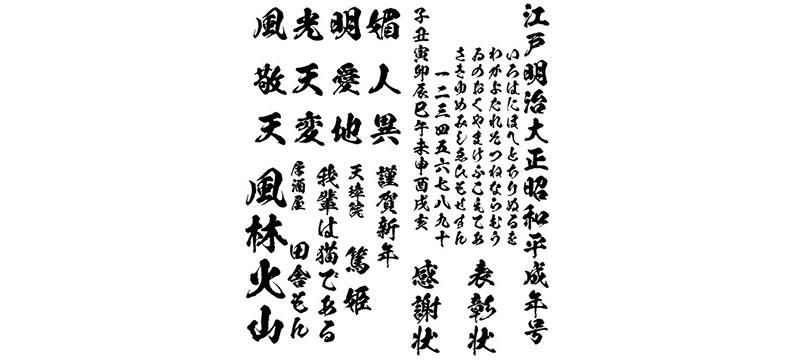 江戸明治大正昭和平成年号
いろはにほへとちりぬるを
わかよたれそつねならむう
ゐのおくやまけふこえてあ
さきゆめみしゑひもせすん
一二三四五六七八九十
子丑寅卯辰巳午未申酉戌亥
表彰状
感謝状
風光明媚
敬天愛人
天変地異
謹賀新年
天璋院 篤姫
我輩は猫である
居酒屋 田舎もん
風林火山